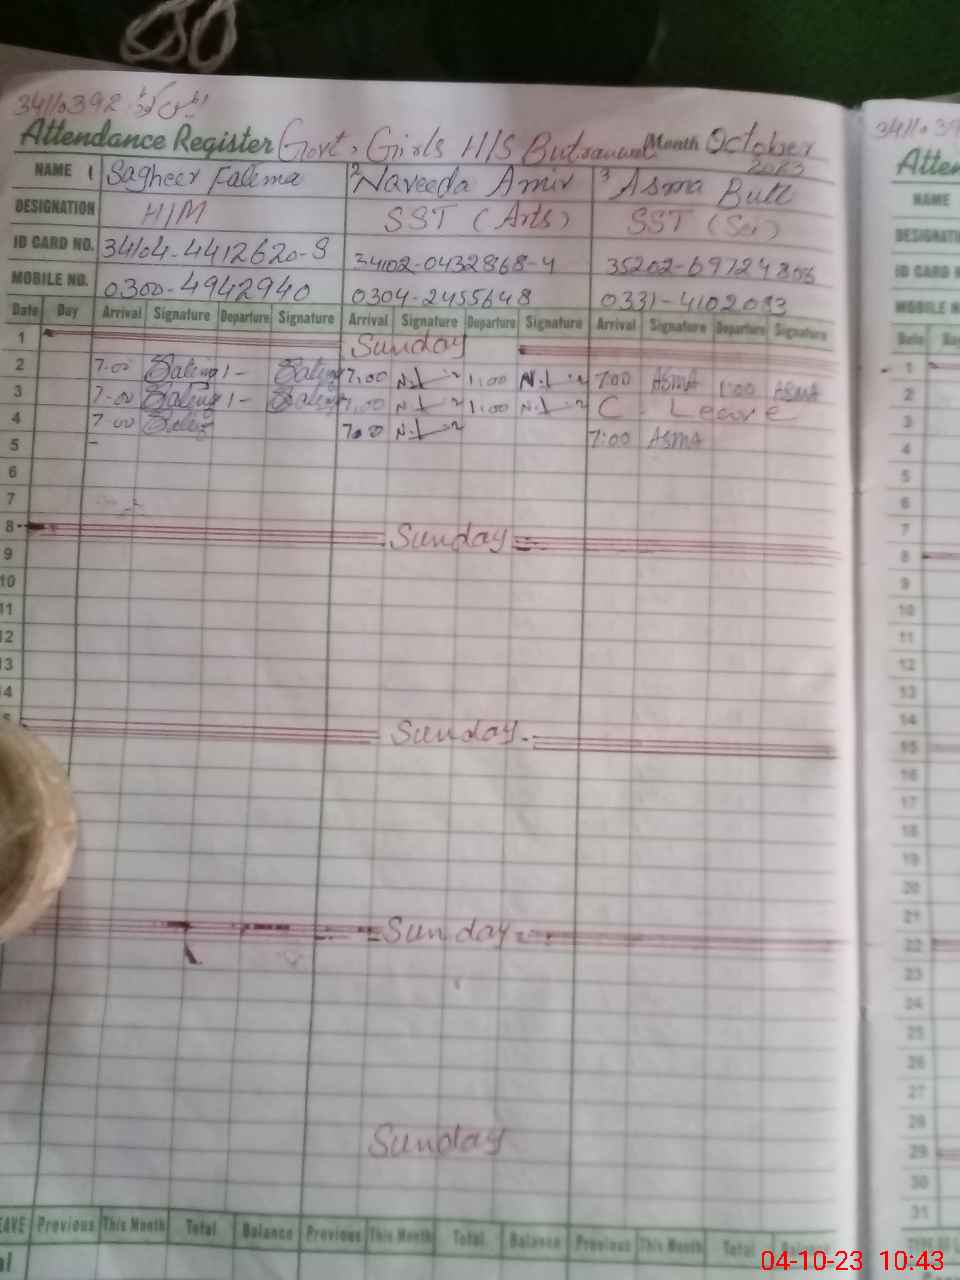 34110392
Attendance Register Govt. Girls H/S Butranwali Month October
2023
NAME 1 Sagheer Fatema 2 Naveeda Amir 3 Asma Butt
DESIGNATION H/M SST (Arts) SST (Sci)
ID CARD NO. 34104-4412620-8 34102-0432868-4
MOBILE NO. 0300-4942940 0304-2455648 0331-4102083
Date Day Arrival Signature Departure Signature Arrival Signature Departure Signature Arrival Signature Departure Signature
1 Sunday
2 7.00 1- 7.00 1:00 7:00 ASMA 1:00 ASMA
3 7.00 1- 7.00 1:00 C. Leave
4 7 00 7.00 7:00 ASMA
5
6
7
8 Sunday
9
10
11
12
13
14
Sunday
Sunday
Sunday
LEAVE Previous This Month Total Balance Previous This Month Total Balance Previous This Month Total Balance
3411039
Atten
NAME
DESIGNATI
ID CARD N
MOBILE N
Date
1
2
3
4
5
6
7
8
9
10
11
12
13
14
15
16
17
18
19
20
21
22
23
24
25
26
27
28
29
30
31
04-10-23 10:43